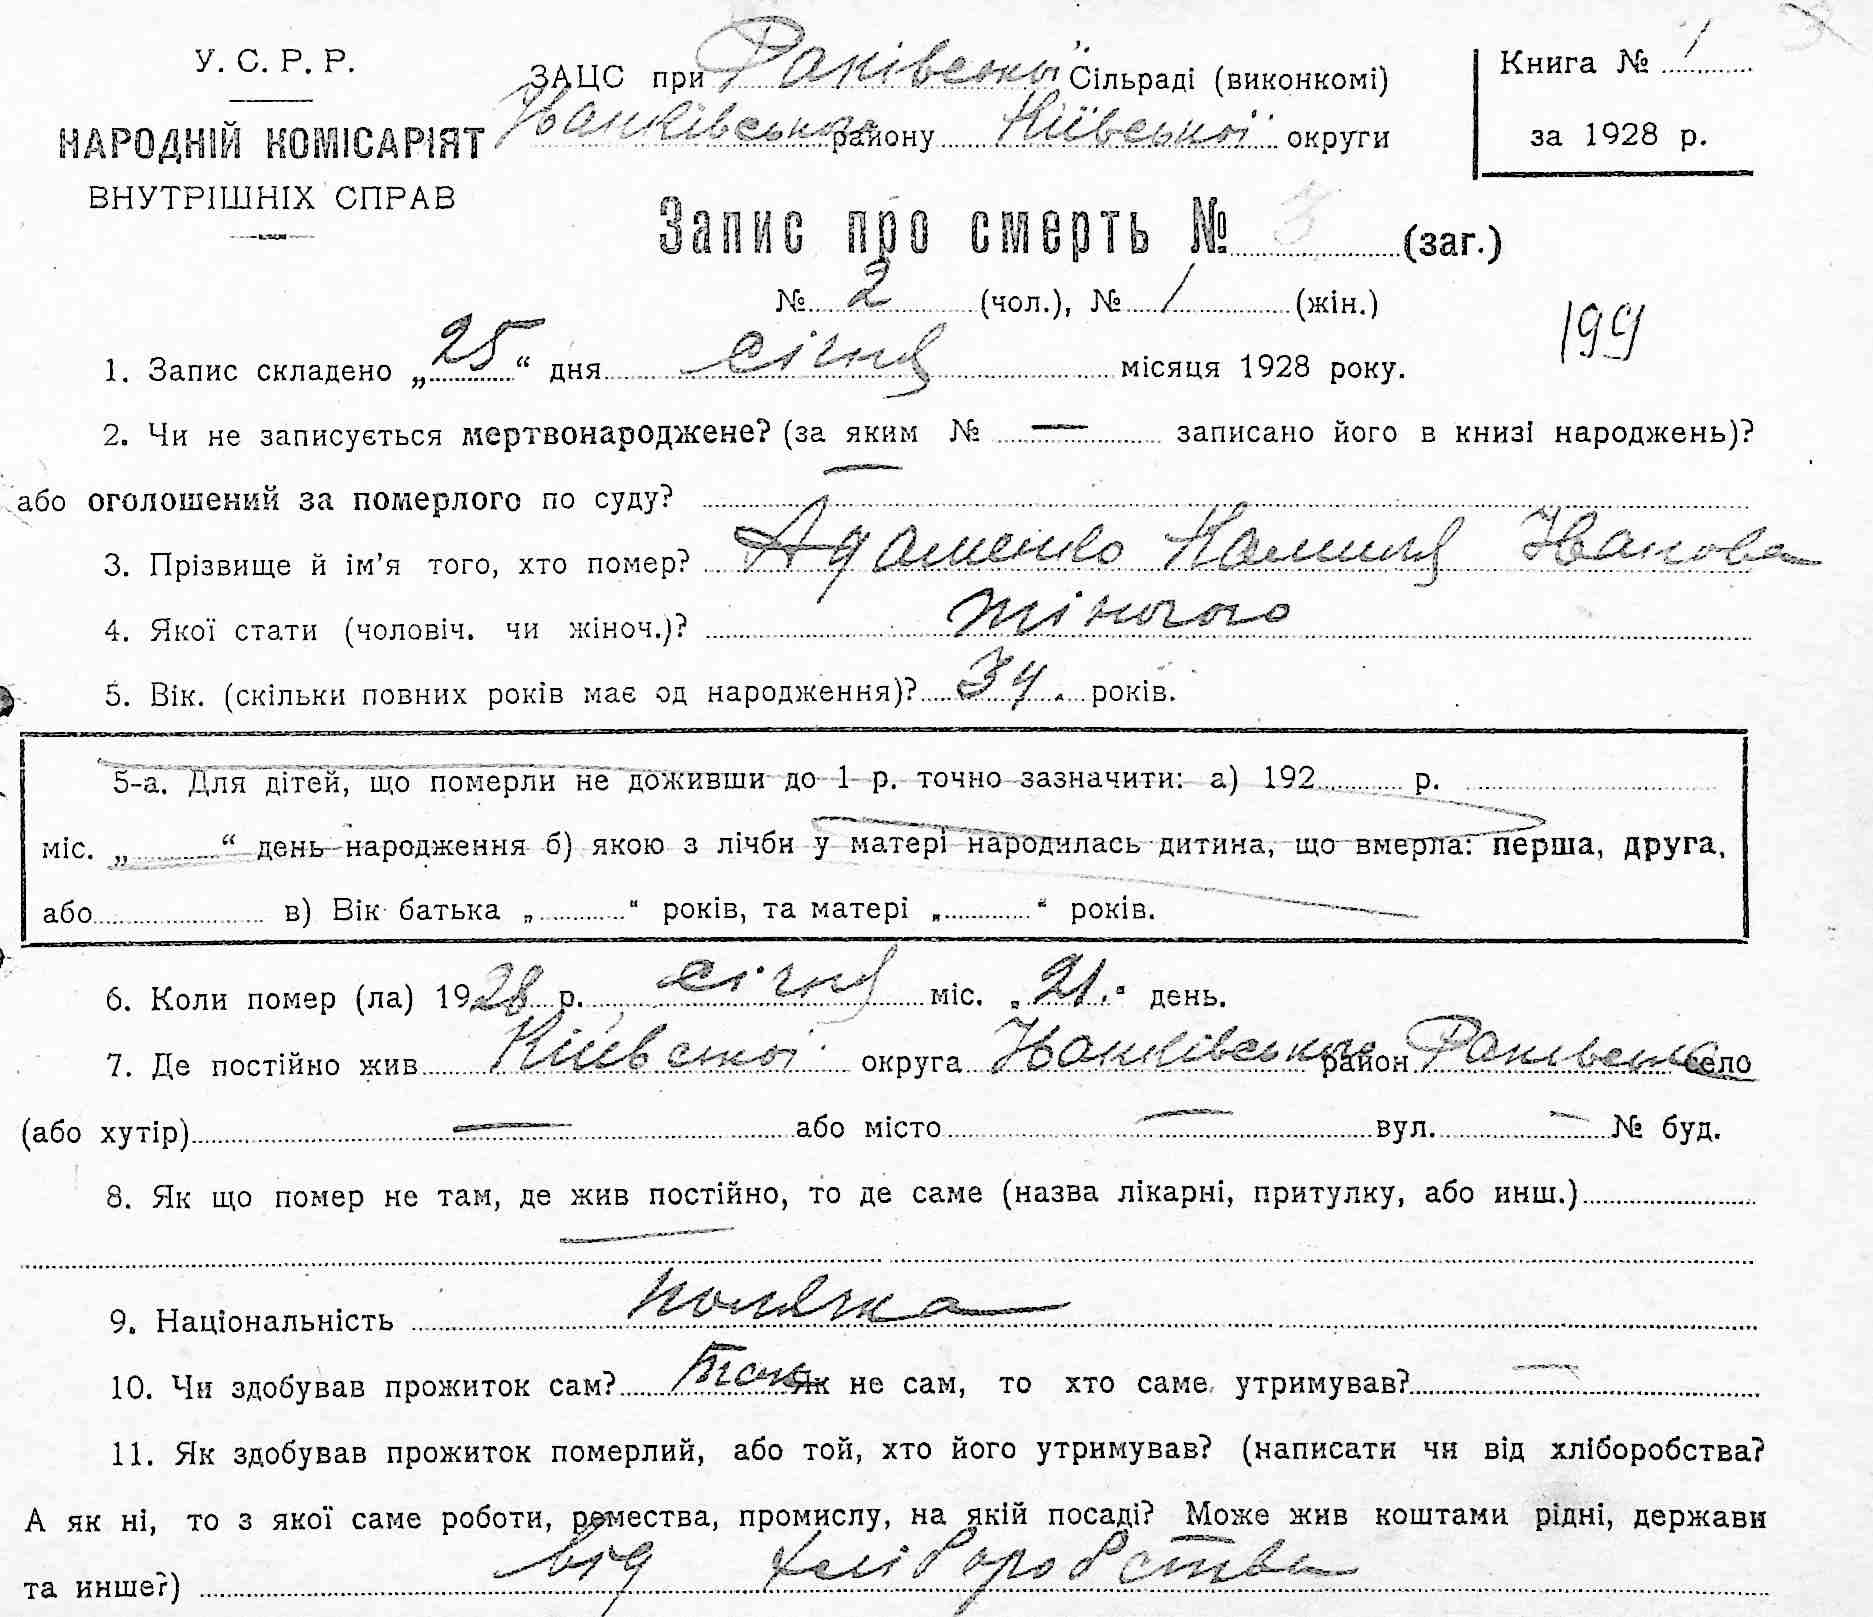 У. С. Р. Р.
НАРОДНІЙ КОМІСАРІЯТ
ВНУТРІШНІХ СПРАВ
ЗАЦС при Раківській Сільраді (виконкомі)
Іванківського району Київської округи
Книга № 1
за 1928 р.
Запис про смерть № 3 (заг.)
№ 2 (чол.), № 1 (жін.)
199
1. Запис складено „25“ дня січня місяця 1928 року.
2. Чи не записується мертвонароджене? (за яким № — записано його в книзі народжень)?
або оголошений за померлого по суду? —
3. Прізвище й ім'я того, хто помер? Адаменко Камиля Іванова
4. Якої стати (чоловіч. чи жіноч.)? жіночого
5. Вік. (скільки повних років має од народження)? 34. років.
5-а. Для дітей, що померли не доживши до 1 р. точно зазначити: а) 192 р.
міс. „ “ день народження б) якою з лічби у матері народилась дитина, що вмерла: перша, друга,
або в) Вік батька „ “ років, та матері „ “ років.
6. Коли помер (ла) 1928 р. січня міс. „21.“ день.
7. Де постійно жив Київської округа Іванківського район Раківська село
(або хутір) — або місто — вул. — № буд.
8. Як що помер не там, де жив постійно, то де саме (назва лікарні, притулку, або инш.)
—
9. Національність полячка
10. Чи здобував прожиток сам? Так Як не сам, то хто саме утримував? —
11. Як здобував прожиток померлий, або той, хто його утримував? (написати чи від хліборобства?
А як ні, то з якої саме роботи, ремества, промислу, на якій посаді? Може жив коштами рідні, держави
та инше?) від хліборобства